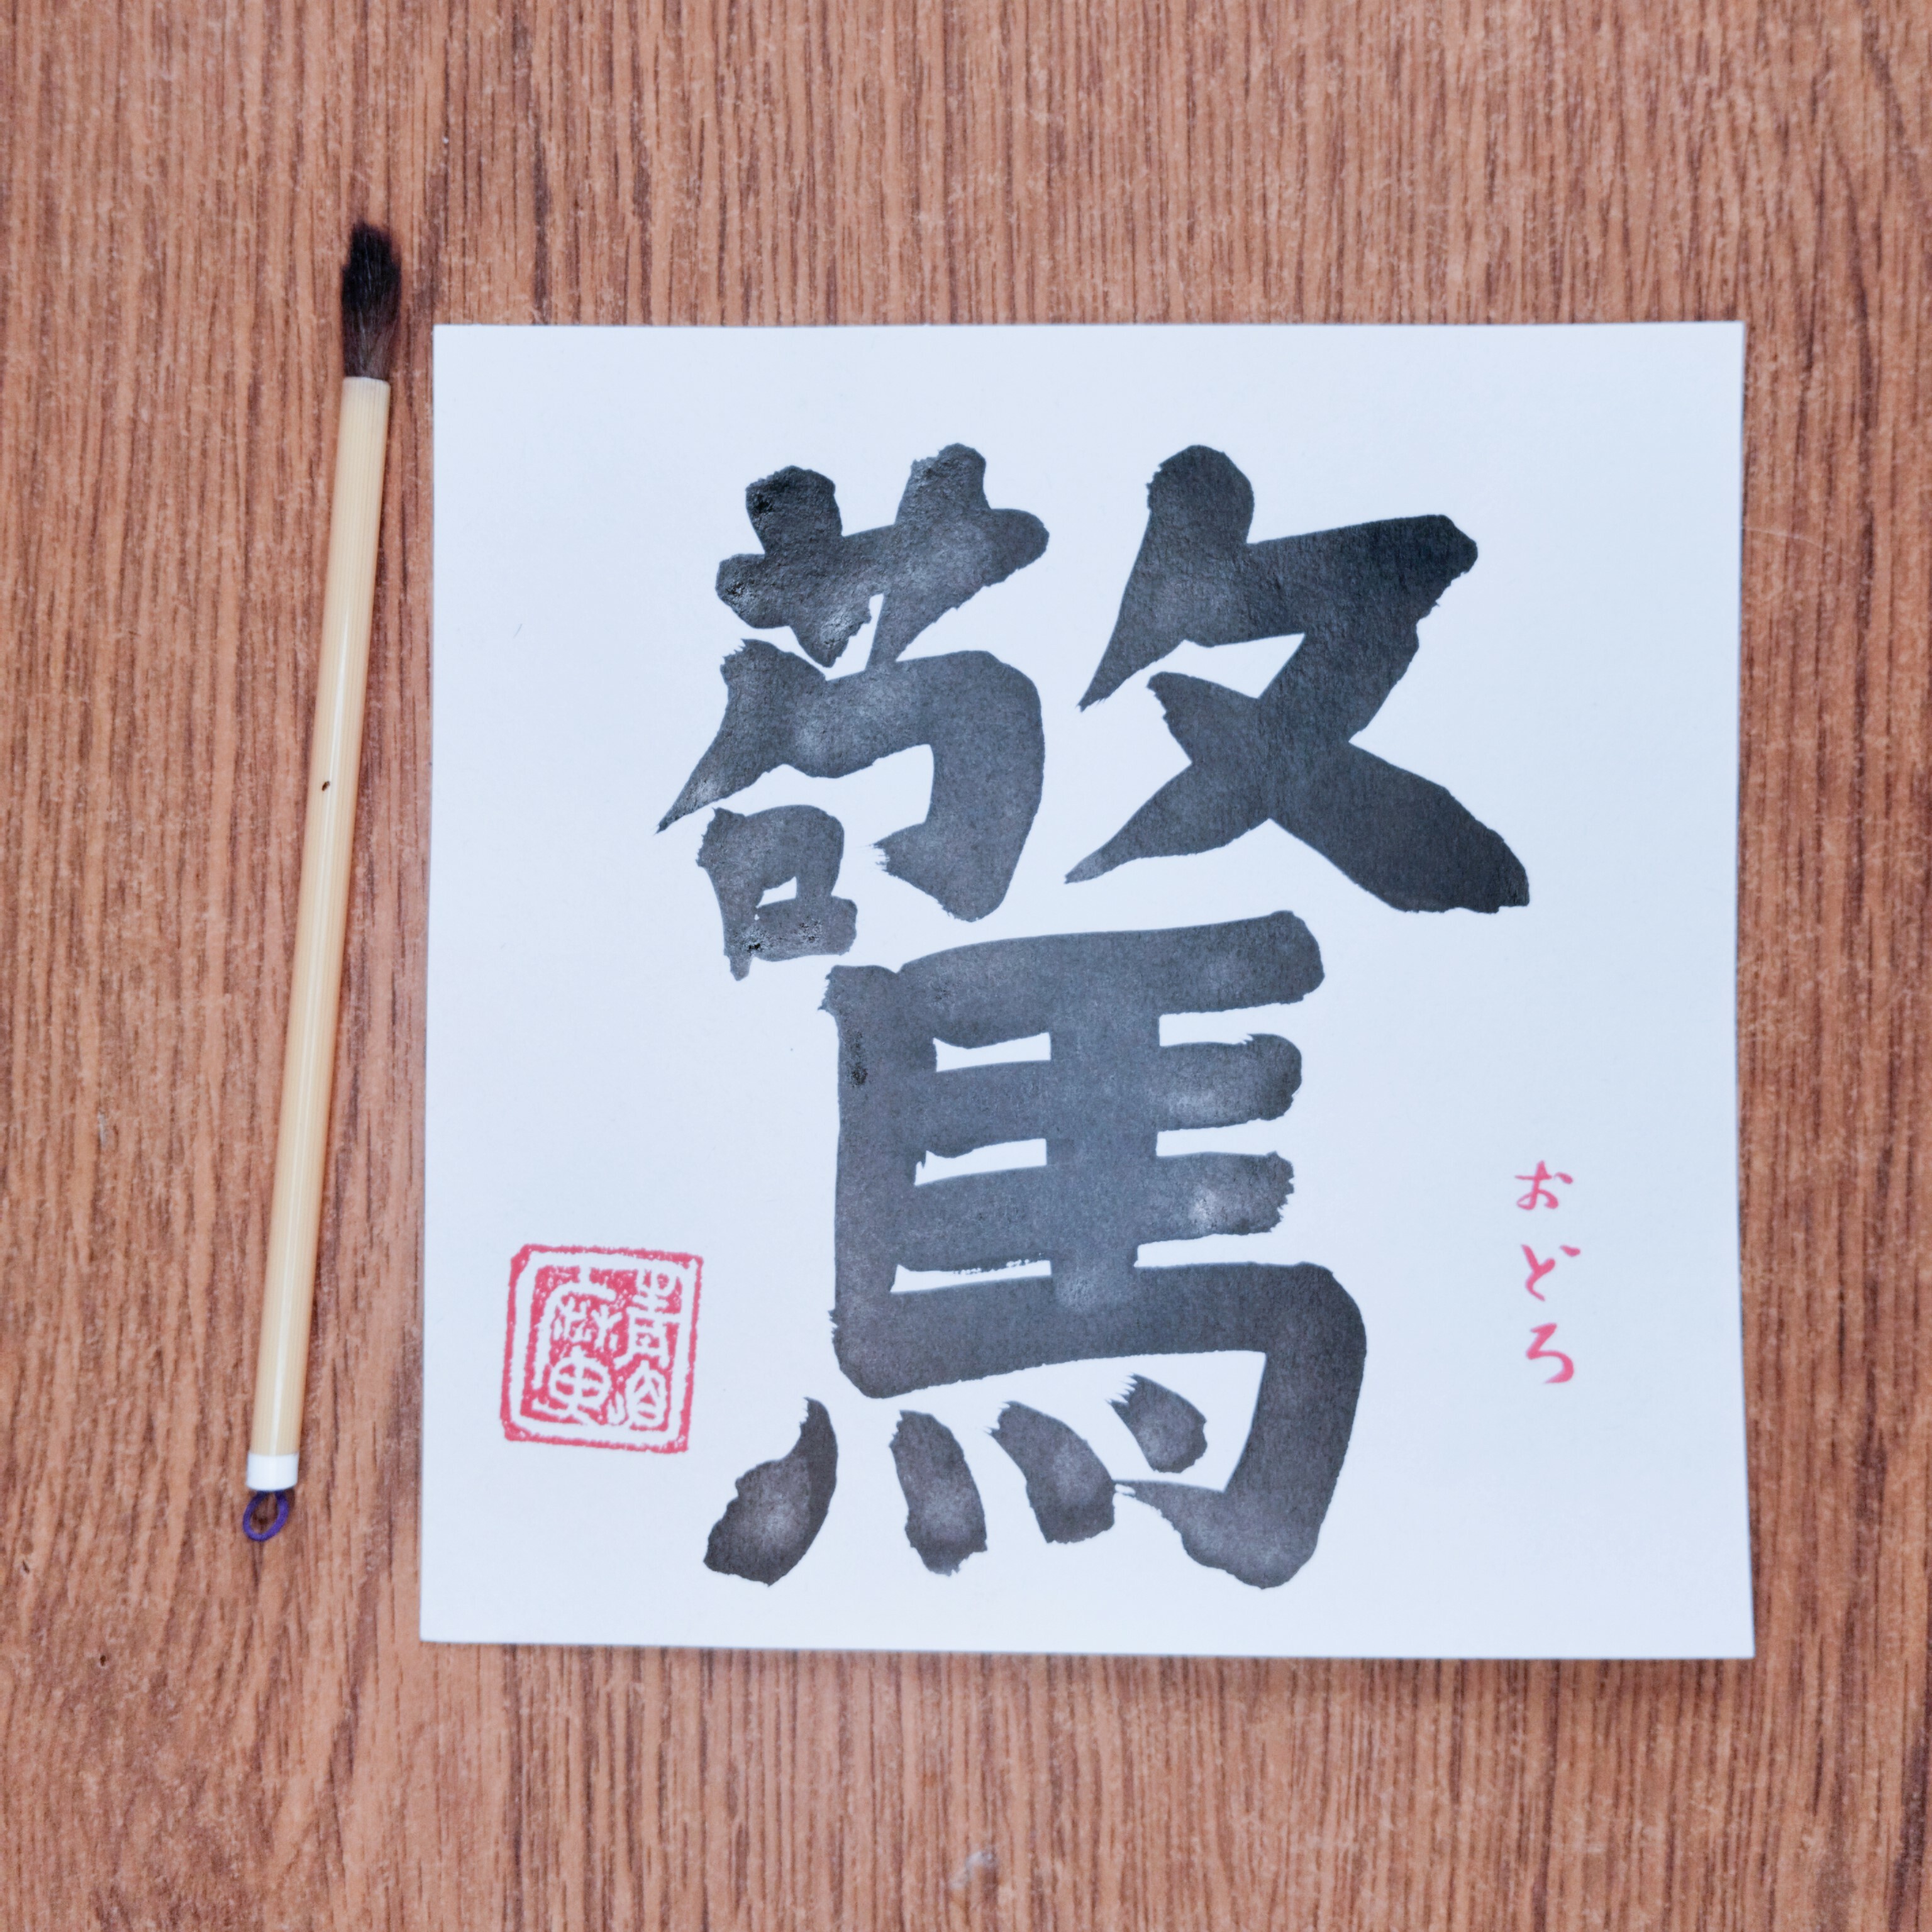 驚
おどろ